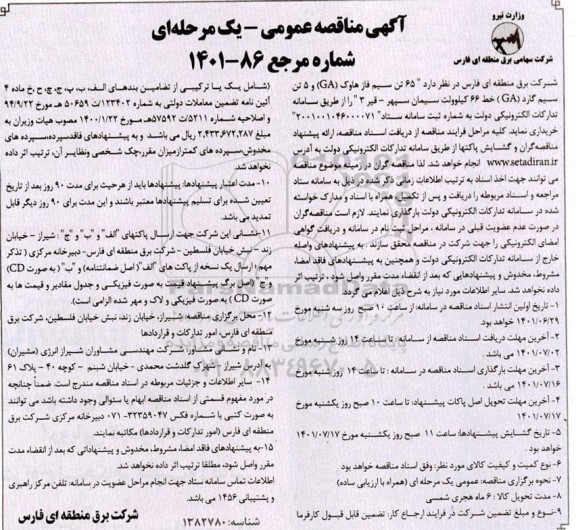 وزارت نیرو
شرکت سهامی برق منطقه ای فارس
آگهی مناقصه عمومی - یک مرحله‌ای
شماره مرجع ۸۶-۱۴۰۱
شرکت برق منطقه ای فارس در نظر دارد " ۶۵ تن سیم فاز هاوک (GA) و ۵ تن
سیم گارد (GA) خط ۶۶ کیلوولت سیمان سپهر - قیر ۳ " را از طریق سامانه
تدارکات الکترونیکی دولت به شماره ثبت سامانه ستاد
خریداری نماید. کلیه مراحل فرایند مناقصه از دریافت اسناد مناقصه، ارائه پیشنهاد
مناقصه‌گران و گشایش پاکتها از طریق سامانه تدارکات الکترونیکی دولت به آدرس
www.setadiran.ir انجام خواهد شد. لذا مناقصه گران در زمینه موضوع مناقصه
می توانند جهت اخذ اسناد به ترتیب اطلاعات زمانی ذکر شده در ذیل به سامانه ستاد
مراجعه و اسناد مربوطه را دریافت و پس از تکمیل همراه با اسناد و مدارک خواسته
شده در سامانه تدارکات الکترونیکی دولت بارگذاری نمایند. لازم است مناقصه‌گران
در صورت عدم عضویت قبلی در سامانه ، مراحل ثبت نام در سامانه و دریافت گواهی
امضای الکترونیکی را جهت شرکت در مناقصه محقق سازند . به پیشنهادهای واصله
خارج از سامانه تدارکات الکترونیکی دولت و همچنین به پیشنهادهای فاقد امضا،
مشروط، مخدوش و پیشنهادهایی که بعد از انقضاء مدت مقرر واصل شود ، ترتیب اثر
داده نخواهد شد. سایر اطلاعات مورد نیاز به شرح ذیل اعلام می گردد.
۱- تاریخ اولین انتشار اسناد مناقصه در سامانه: از ساعت ۱۰ صبح روز سه شنبه مورخ
۱۴۰۱/۰۶/۲۹ خواهد بود.
۲- آخرین مهلت دریافت اسناد مناقصه از سامانه : تا ساعت ۱۴ روز شنبه مورخ
۱۴۰۱/۰۷/۰۲ می باشد.
۳- آخرین مهلت بارگذاری اسناد مناقصه در سامانه : تا ساعت ۱۴ روز شنبه مورخ
۱۴۰۱/۰۷/۱۶ می باشد .
۴- آخرین مهلت تحویل اصل پاکات پیشنهاد: تا ساعت ۱۰ صبح روز یکشنبه مورخ
۱۴۰۱/۰۷/۱۷
۵- تاریخ گشایش پیشنهادها: ساعت ۱۱ صبح روز یکشنبه مورخ ۱۴۰۱/۰۷/۱۷
خواهد بود.
۶- نوع کمیت و کیفیت کالای مورد نظر: وفق اسناد مناقصه خواهد بود
۷- نحوه برگزاری مناقصه: عمومی یک مرحله ای (همراه با ارزیابی ساده)
۸- مدت تحویل کالا: ۶ ماه هجری شمسی
۹- نوع و مبلغ تضمین شرکت در فرایند ارجاع کار: تضمین قابل قبول کارفرما
(شامل یک یا ترکیبی از تضامین بندهای الف، ب، پ، ج، چ، ح، خ ماده ۴
آئین نامه تضمین معاملات دولتی به شماره ۱۲۳۴۰۲/ت ۵۰۶۵۹ هـ مورخ ۹۴/۹/۲۲
و اصلاحیه شماره ۵۲۱۱/ت ۵۷۵۹۲هـ مورخ ۱۴۰۰/۱/۲۲ مصوب هیأت وزیران به
مبلغ ۲,۴۳۳,۶۷۲,۲۸۷ ریال می باشد و به پیشنهادهای فاقد سپرده، سپرده های
مخدوش، سپرده های کمتر از میزان مقرر، چک شخصی و نظایر آن، ترتیب اثر داده
نخواهد شد.
۱۰- مدت اعتبار پیشنهادها: پیشنهادها باید از هر حیث برای مدت ۹۰ روز بعد از تاریخ
تعیین شده برای تسلیم پیشنهادها معتبر باشند و این مدت برای ۹۰ روز دیگر قابل
تمدید می باشد.
۱۱- نشانی این شرکت جهت ارسال پاکتهای "الف" و "ب" و "ج" : شیراز - خیابان
زند - نبش خیابان فلسطین - شرکت برق منطقه ای فارس- دبیرخانه مرکزی ( تذکر
مهم: ارسال یک نسخه از پاکت های "الف" (اصل ضمانتنامه) و "ب" ( به صورت CD)
و ج (اصل برگ پیشنهاد قیمت به صورت فیزیکی و جدول مقادیر و قیمت ها به
صورت CD ) به صورت فیزیکی و لاک و مهر شده الزامی است.)
۱۲- محل برگزاری مناقصه: شیراز، خیابان زند، نبش خیابان فلسطین، شرکت برق
منطقه ای فارس، امور تدارکات و قراردادها
۱۳- نام و نشانی مشاور: شرکت مهندسی مشاوران شیراز انرژی (مشیران)
آدرس شیراز - شهرک گلدشت محمدی - خیابان شبنم - کوچه ۴۰ - پلاک ۶۱
۱۴- سایر اطلاعات و جزئیات مربوطه در اسناد مناقصه مندرج است. ضمناً چنانچه
در مورد مفهوم قسمتی از اسناد مناقصه ابهام یا سئوالی وجود داشته باشد می توانند
به صورت کتبی با شماره فکس ۳۲۳۵۹۰۴۷-۰۷۱ دبیرخانه مرکزی شرکت برق
منطقه ای فارس (امور تدارکات و قراردادها) مکاتبه نمایند.
۱۵- به پیشنهادهای فاقد امضا، مشروط، مخدوش و پیشنهاداتی که بعد از انقضاء مدت
مقرر واصل شود، مطلقا ترتیب اثر داده نخواهد شد.
اطلاعات تماس سامانه ستاد جهت انجام مراحل عضویت در سامانه: تلفن مرکز راهبری
و پشتیبانی ۱۴۵۶ می باشد.
شناسه: ۱۳۸۲۷۸۰
شرکت برق منطقه ای فارس